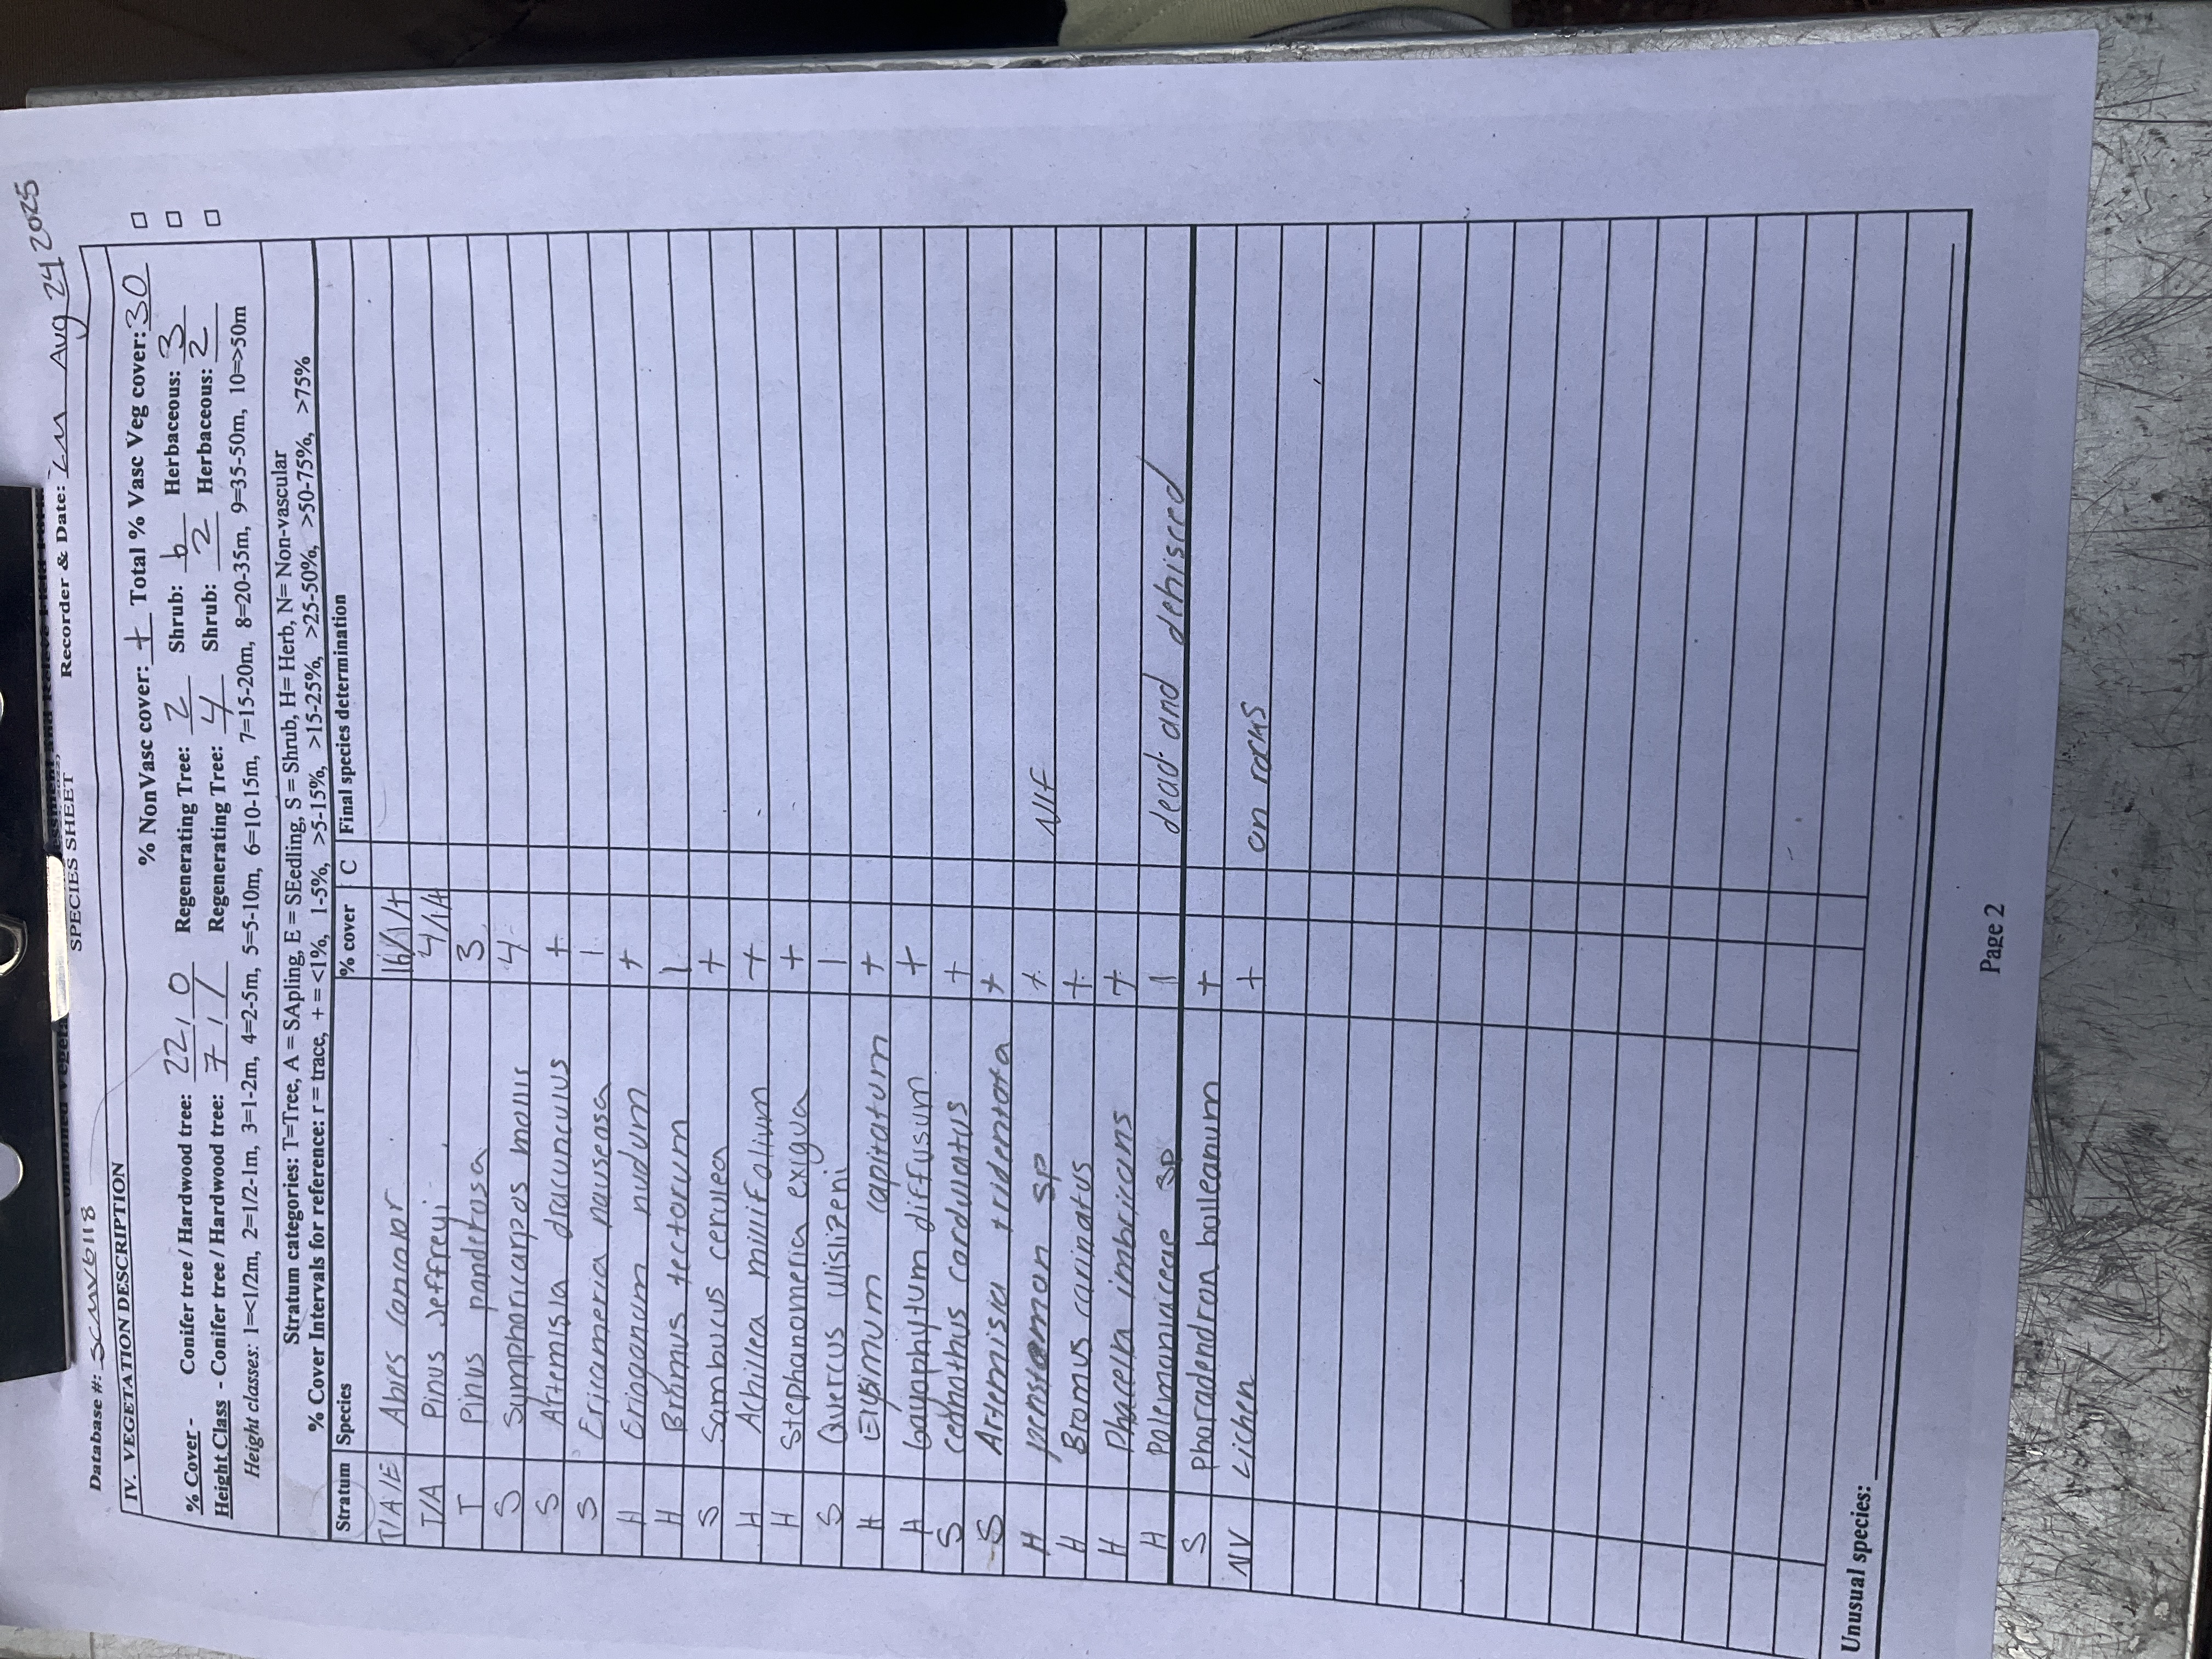 SPECIES SHEET
Database #: SCMV6118 Recorder & Date: LM Aug 24 2025
IV. VEGETATION DESCRIPTION
% NonVasc cover: + Total % Vasc Veg cover: 30 □
% Cover - Conifer tree / Hardwood tree: 22 / 0 Regenerating Tree: 2 Shrub: 6 Herbaceous: 3 □
Height Class - Conifer tree / Hardwood tree: 7 / / Regenerating Tree: 4 Shrub: 2 Herbaceous: 2 □
Height classes: 1=<1/2m, 2=1/2-1m, 3=1-2m, 4=2-5m, 5=5-10m, 6=10-15m, 7=15-20m, 8=20-35m, 9=35-50m, 10=>50m
Stratum categories: T=Tree, A = SApling, E = SEedling, S = Shrub, H= Herb, N= Non-vascular
% Cover Intervals for reference: r = trace, + = <1%, 1-5%, >5-15%, >15-25%, >25-50%, >50-75%, >75%
Stratum Species % cover C Final species determination
T/A/E Abies concolor 16/1/+
T/A Pinus Jeffreyi 4/1/+
T Pinus ponderosa 3
S Symphoricarpos mollis 4
S Artemisia dracunculus +
S Ericameria nauseosa 1
H Eriogonum nudum +
H Bromus tectorum 1
S Sambucus cerulea +
H Achillea millifolium +
H Stephanomeria exigua +
S Quercus wislizeni 1
H Erysimum capitatum +
H Gayophytum diffusum +
S ceanothus cordulatus +
S Artemisia tridentata +
H penstemon sp + NIF
H Bromus carinatus +
H Phacelia imbricans +
H Polemoniaceae sp 1 dead and dehisced
S Phoradendron bolleanum +
NV Lichen + on rocks
Unusual species:
Page 2